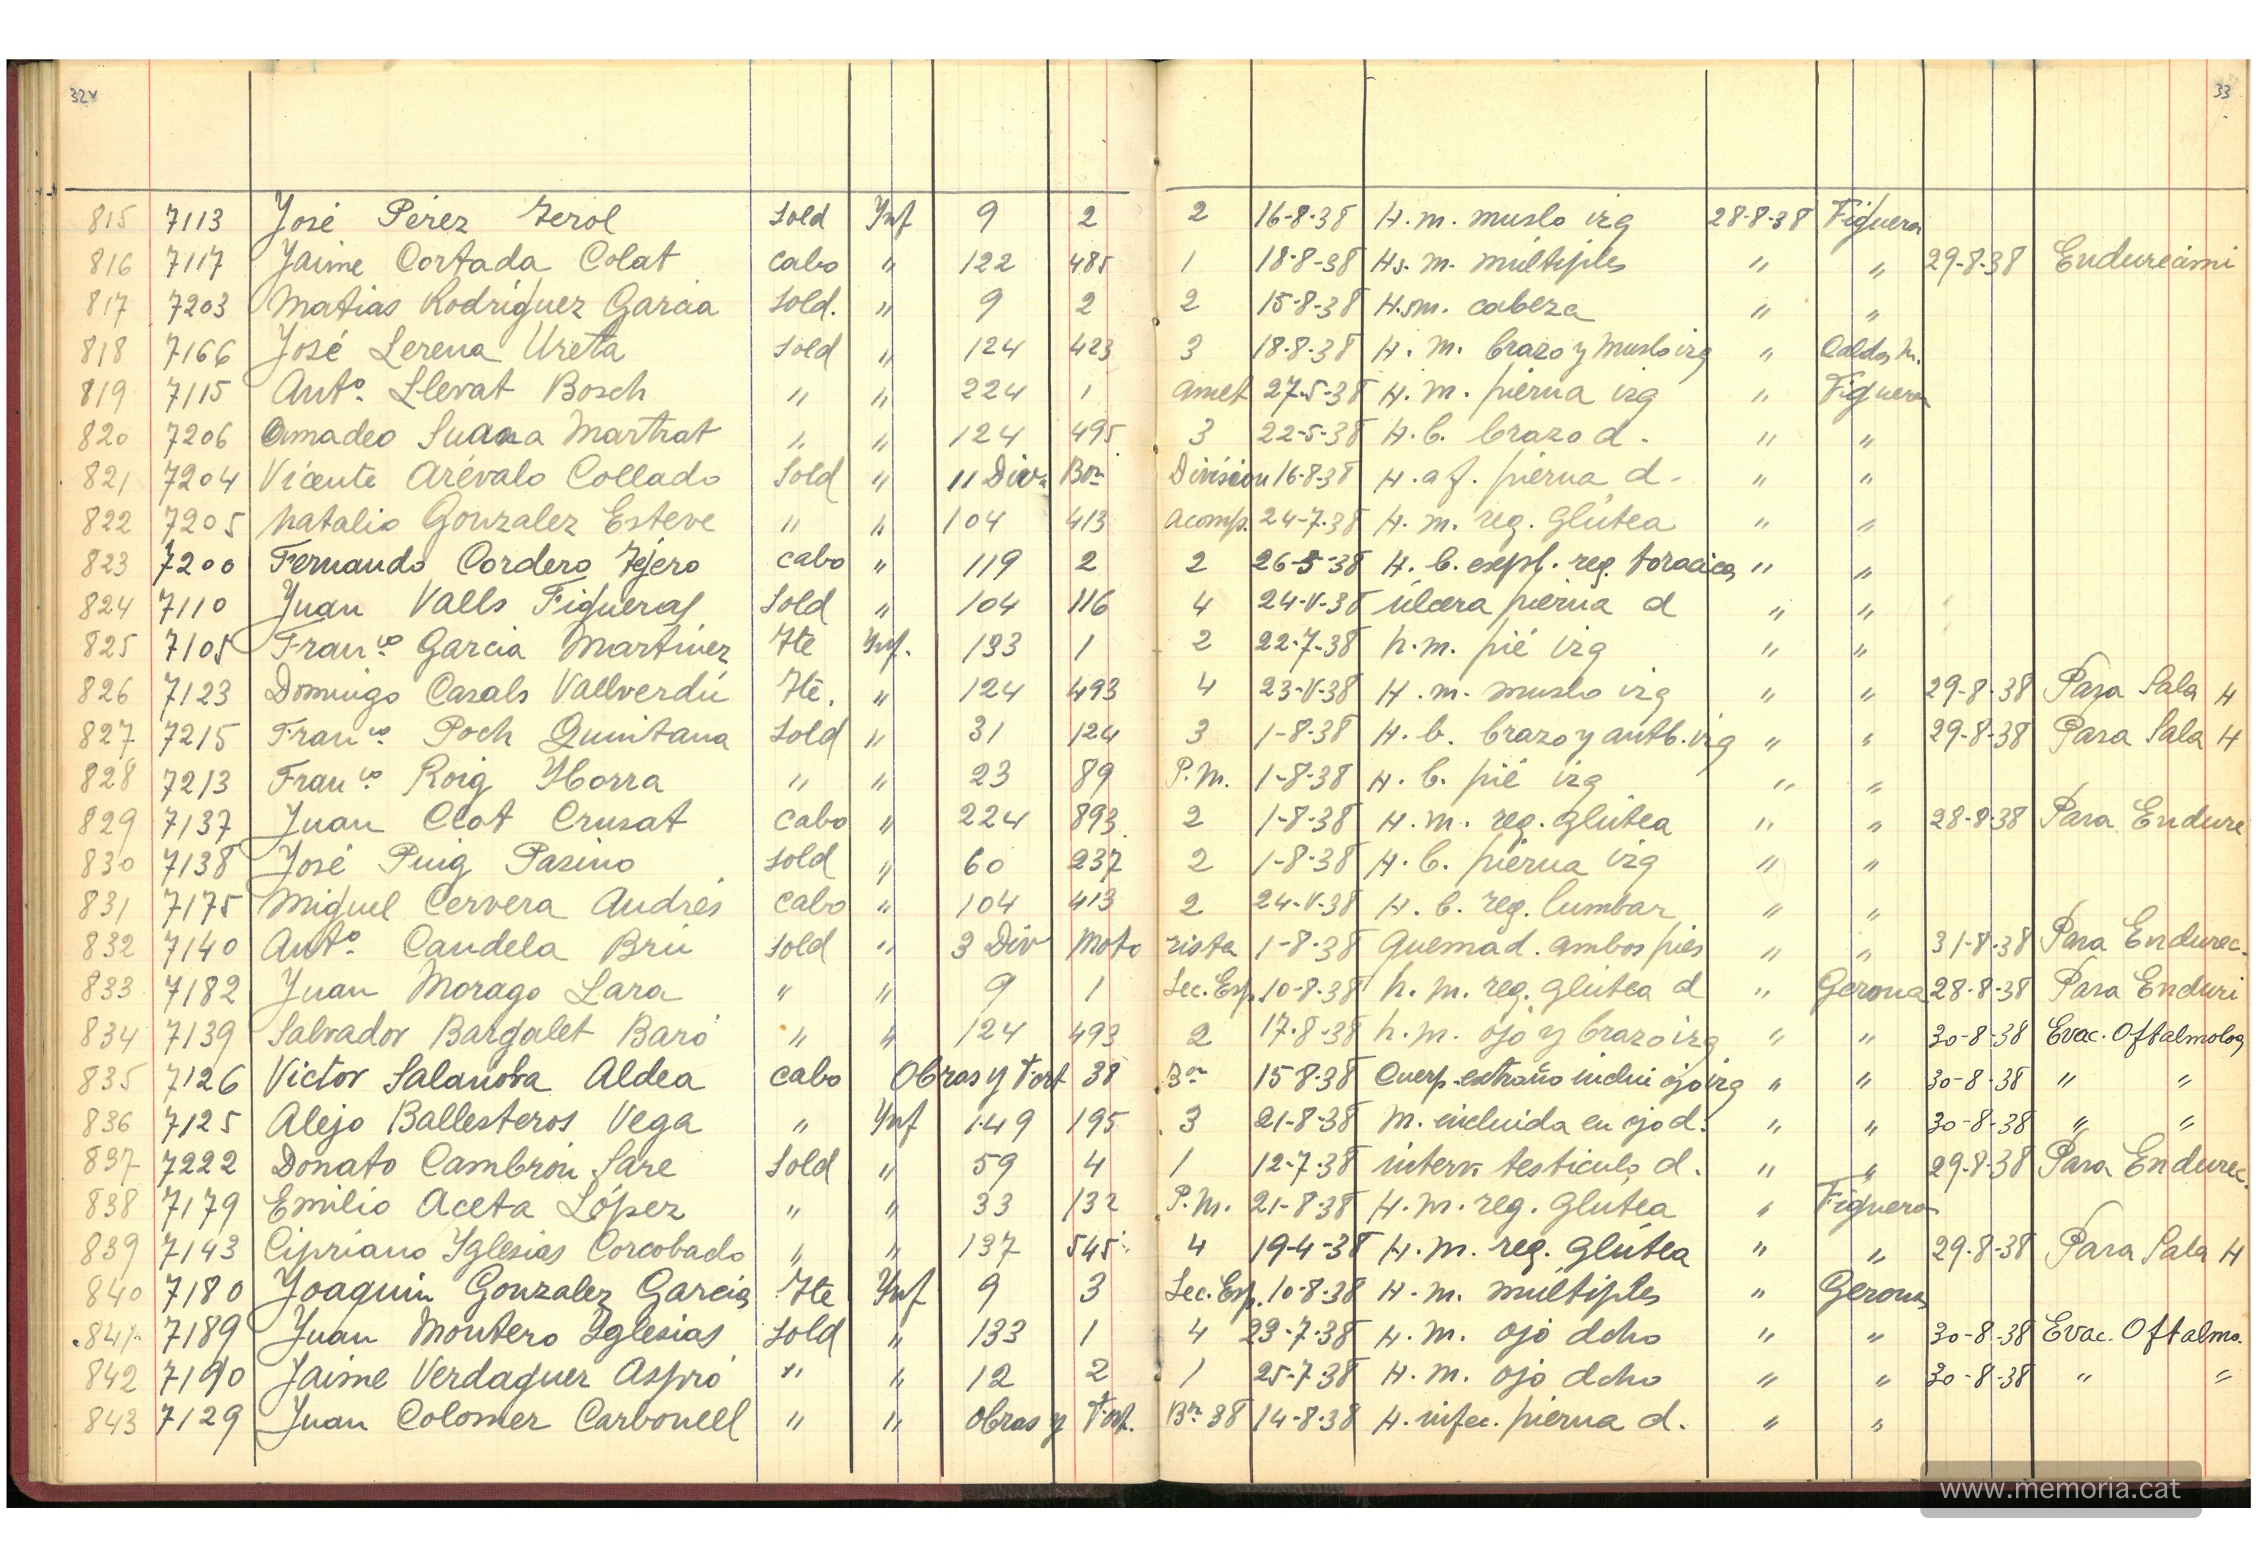 32v
33
815 7113 José Pérez Terol Sold Ynf 9 2 2 16-8-38 H. m. muslo izq 28-8-38 Figueras
816 7117 Jaime Cortada Colat cabo " 122 485 1 18-8-38 Hs. m. múltiples " " 29-8-38 Endurecimi
817 7203 Matias Rodríguez Garcia Sold. " 9 2 2 15-8-38 H. m. cabeza " "
818 7166 José Lerena Ureta Sold " 124 423 3 18-8-38 H. m. brazo y muslo izq " Caldas M.
819 7115 Antº. Llevat Bosch " " 224 1 amet 27-5-38 H. m. pierna izq " Figueras
820 7206 Amadeo Martrat " " 124 495 3 22-5-38 H. b. brazo d. " "
821 7204 Vicente Arévalo Collado Sold " 11 Divn Bon Division 16-8-38 H. a f. pierna d. " "
822 7205 Natalio Gonzalez Esteve " " 104 413 Acomp. 24-7-38 H. m. reg. Glútea " "
823 7200 Fernando Cordero Tejero cabo " 119 2 2 26-5-38 H. b. expl. reg. toracica " "
824 7110 Juan Valls Figueras Sold " 104 116 4 24-V-38 úlcera pierna d " "
825 7105 Franco Garcia Martinez Tte Ynf. 133 1 2 22-7-38 h. m. pié izq " "
826 7123 Domingo Casals Vallverdú Tte. " 124 493 4 23-V-38 H. m. muslo izq " " 29-8-38 Para Sala H
827 7215 Franco Poch Quintana Sold " 31 124 3 1-8-38 H. b. brazo y antb. izq " " 29-8-38 Para Sala H
828 7213 Franco Roig Yborra " " 23 89 P. M. 1-8-38 H. b. pié izq " "
829 7137 Juan Clot Crusat cabo " 224 893 2 1-8-38 H. m. reg. glútea " " 28-8-38 Para Endure
830 7138 José Puig Pasino Sold " 60 237 2 1-8-38 H. b. pierna izq " "
831 7175 Miguel Cervera Andrés cabo " 104 413 2 24-V-38 H. b. reg. lumbar " "
832 7140 Antº. Candela Brú Sold " 3 Div Moto rista 1-8-38 Quemad. ambos pies " " 31-8-38 Para Endurec.
833 7182 Juan Morago Lara " " 9 1 Sec. Esp. 10-8-38 h. m. reg. glútea d " Gerona 28-8-38 Para Enduri
834 7139 Salvador Bargalet Baró " " 124 493 2 17-8-38 h. m. ojo y brazo izq " " 30-8-38 Evac. Oftalmolog
835 7126 Victor Salanova Aldea cabo Obras y Fort 38 Bon 15-8-38 Cuerp. extraño inclui ojo izq " " 30-8-38 " "
836 7125 Alejo Ballesteros Vega " Ynf 149 195 3 21-8-38 M. incluida en ojo d. " " 30-8-38 " "
837 7222 Donato Cambrón Sare Sold " 59 4 1 12-7-38 interv. testiculo d. " " 29-8-38 Para Endurec.
838 7179 Emilio Aceta López " " 33 132 P. M. 21-8-38 H. m. reg. glútea " Figueras
839 7143 Cipriano Yglesias Corcobado " " 137 545 4 19-4-38 H. m. reg. glútea " " 29-8-38 Para Sala H
840 7180 Joaquin Gonzalez Garcia Tte Ynf 9 3 Sec. Esp. 10-8-38 H. m. múltiples " Gerona
841 7189 Juan Montero Yglesias Sold " 133 1 4 23-7-38 H. m. ojo dcho " " 30-8-38 Evac. Oftalmo.
842 7190 Jaime Verdaguer Aspró " " 12 2 1 25-7-38 H. m. ojo dcho " " 30-8-38 " "
843 7129 Juan Colomer Carbonell " " Obras y Fort. Bon 38 14-8-38 H. infec. pierna d. " "
www.memoria.cat